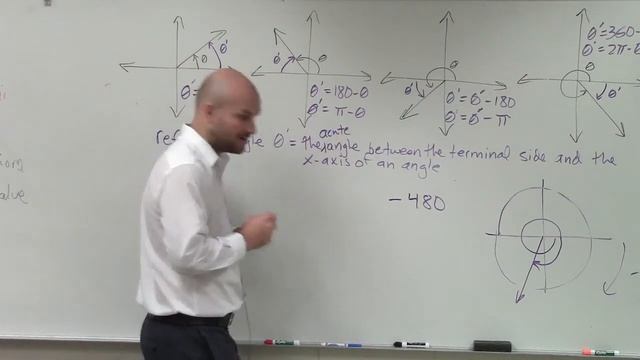 θ' θ
θ'=
θ' θ
θ'=180-θ
θ'=π-θ
θ' θ
θ'=θ-180
θ'=θ-π
θ'=360-
θ'=2π-θ
θ
θ'
acute
θ' = the angle between the terminal side and the
x-axis of an angle
-480